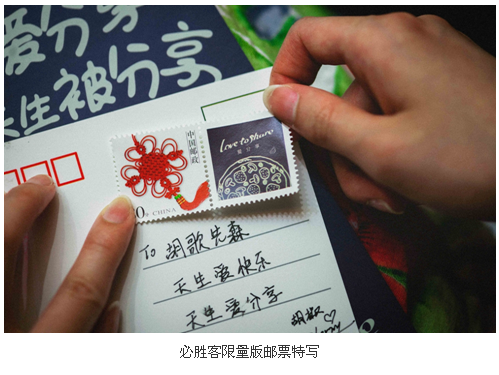 爱分享
天生被分享
中国邮政
CHINA
love to share
To 胡歌先森
天生爱快乐
天生爱分享
必胜客限量版邮票特写